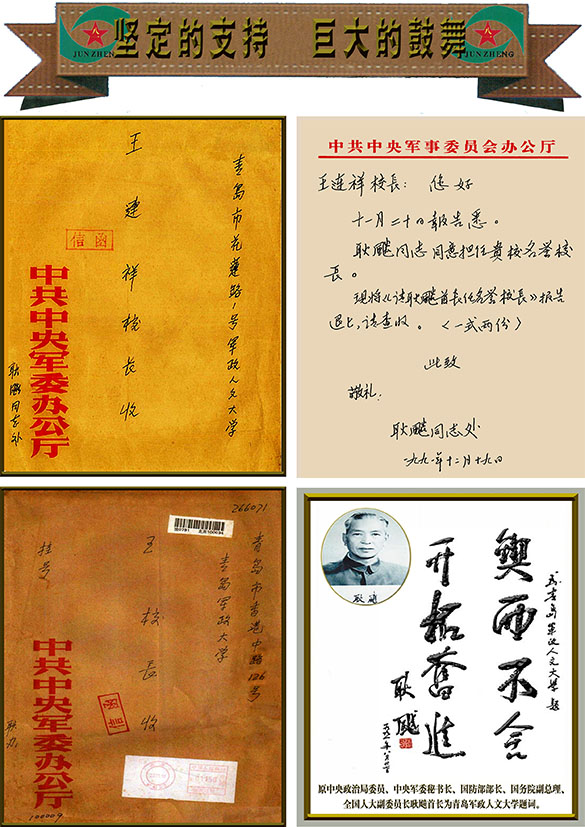 坚定的支持 巨大的鼓舞
JUNZHENG
JUNZHENG
青岛市花莲路1号军政人文大学
王建祥校长收
信函
中共中央军委办公厅
耿飚同志处
中共中央军事委员会办公厅
王建祥校长：您好
十一月二十日報告悉。
耿飚同志同意担任贵校名誉校
长。
现将《请耿飚首长任名誉校长》报告
退上，请查收。〈一式两份〉
此致
敬礼！
耿飚同志处
年十二月十九日
266071
青岛市香港中路126号
青岛军政大学
王校长收
挂号
信函
中共中央军委办公厅
耿办
100009
为青岛军政人文大学题
锲而不舍
开拓奮進
耿飚
耿飚
原中央政治局委员、中央军委秘书长、国防部部长、国务院副总理、
全国人大副委员长耿飚首长为青岛军政人文大学题词。